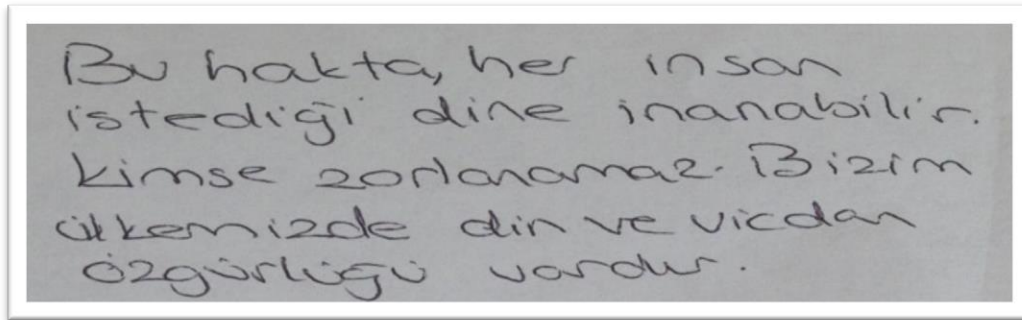 Bu hakta, her insan
istediği dine inanabilir.
kimse zorlanamaz. Bizim
ülkemizde din ve vicdan
özgürlüğü vardır.